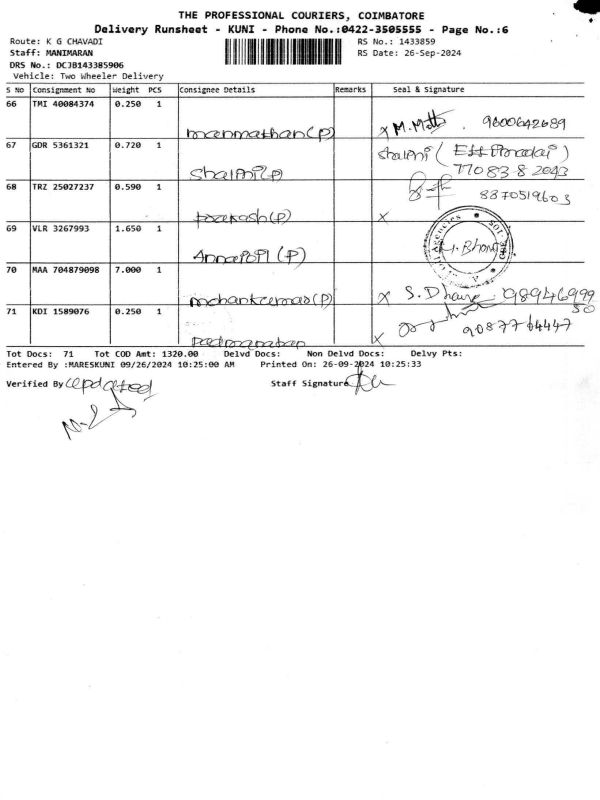 THE PROFESSIONAL COURIERS, COIMBATORE
Delivery Runsheet - KUNI - Phone No.:0422-3505555 - Page No.:6
Route: K G CHAVADI RS No.: 1433859
Staff: MANIMARAN RS Date: 26-Sep-2024
DRS No.: DCJB143385906
Vehicle: Two Wheeler Delivery
S No Consignment No Weight PCS Consignee Details Remarks Seal & Signature
66 TMI 40084374 0.250 1
manmathan(P) x M. 9600642689
67 GDR 5361321 0.720 1 Shalini
Shalini(P) 770 83 8 2043
68 TRZ 25027237 0.590 1 8870519603
(P) x
69 VLR 3267993 1.650 1
(P)
70 MAA 704879098 7.000 1
mohankumar(P) x S. 9894699950
71 KDI 1589076 0.250 1
x 9087764447
Tot Docs: 71 Tot COD Amt: 1320.00 Delvd Docs: Non Delvd Docs: Delvy Pts:
Entered By :MARESKUNI 09/26/2024 10:25:00 AM Printed On: 26-09-2024 10:25:33
Verified By updated Staff Signature